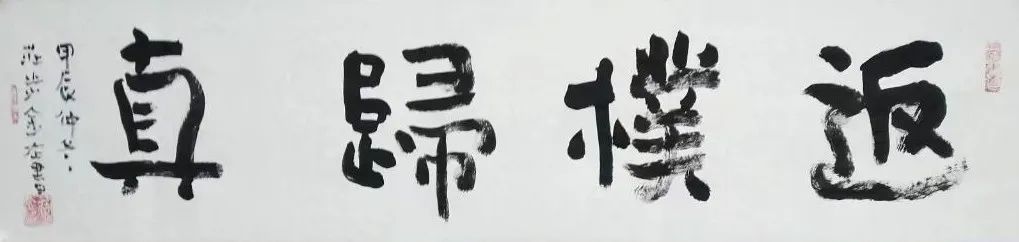 返樸歸真
甲辰仲冬